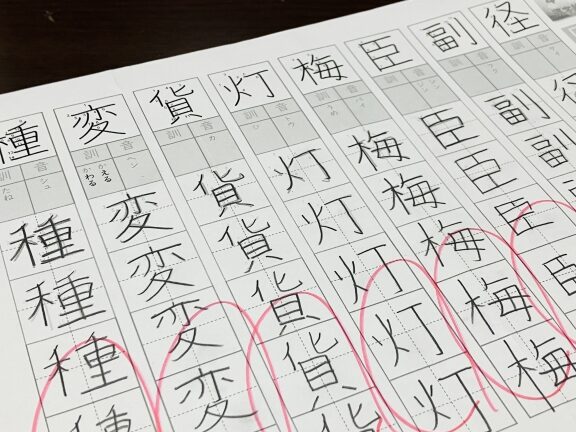 径 径
訓 音 ケイ
副 副 副
訓 音 フク
臣 臣 臣 臣
訓 音 シン ジン
梅 梅 梅 梅 梅 梅
訓 うめ 音 バイ
灯 灯 灯 灯 灯 灯
訓 ひ 音 トウ
貨 貨 貨 貨 貨
訓 音 カ
変 変 変 変 変
訓 かえる かわる 音 ヘン
種 種 種 種 種
訓 たね 音 シュ